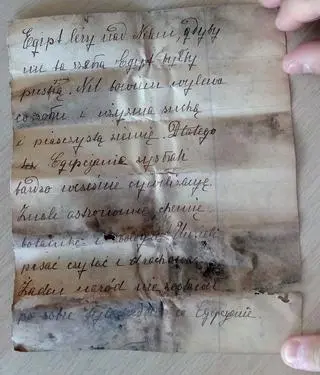 Egipt leży nad Nilem, gdyby
nie ta rzeka Egipt byłby
pustką. Nil bowiem wylewa
co roku i użyźnia suchą
i piaszczystą ziemię. Dlatego
Egipcjanie zyskali
bardzo wcześnie cywilizację.
Znali astronomię, chemię,
botanikę i zoologię. Umieli
pisać czytać i rachować.
Żaden naród nie zostawił
po sobie tyle co Egipcjanie.